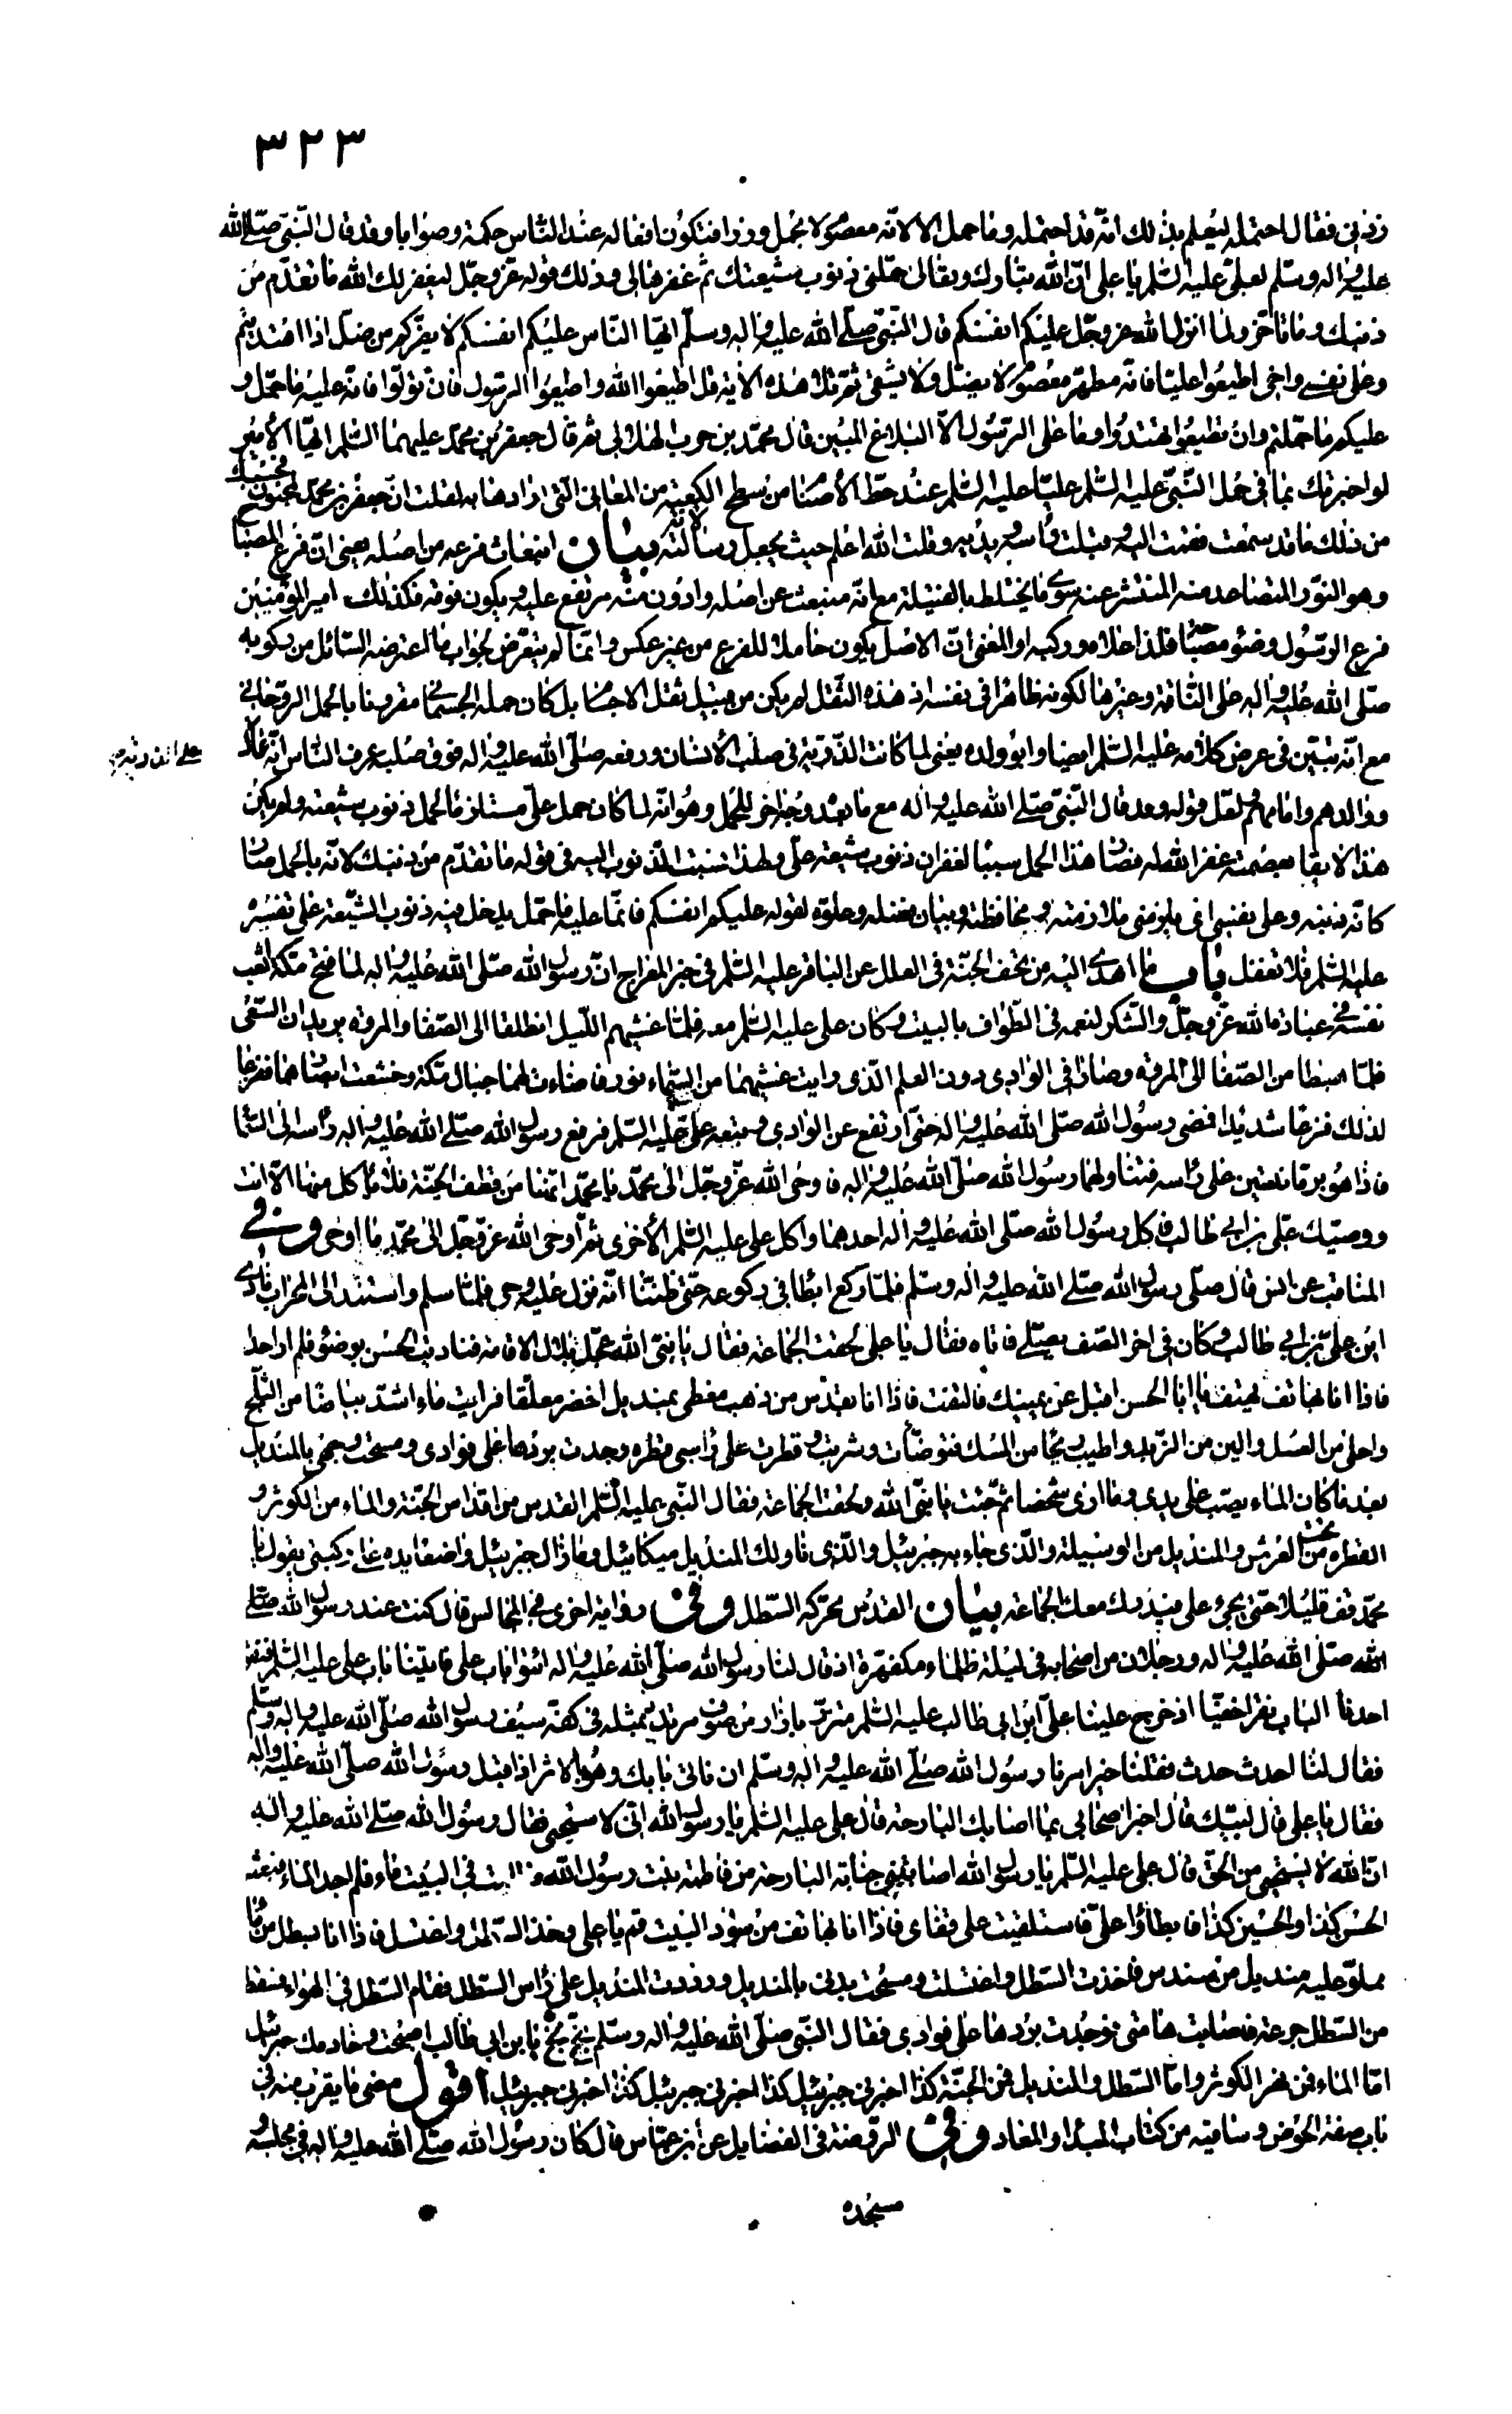 ٣٢٣
زدنی فقال احتمله ليعلم بذلك انّه قد احتمله وما حمل الا لانّه معصوم لا يحمل وزرا فتكون افعاله عند النّاس حكمة وصوابا وقد قال النّبیّ صلّی الله
عليه واله وسلّم لعلیّ عليه السّلم يا علی انّ الله تبارك وتعالی حمّلنی ذنوب شيعتك ثمّ غفرها لی وذلك قوله عزّ وجلّ ليغفر لك الله ما تقدّم من
ذنبك وما تاخّر ولما انزل الله عزّ وجلّ عليكم انفسكم قال النّبیّ صلّی الله عليه واله وسلّم ايّها النّاس عليكم انفسكم لا يضرّكم من ضلّ اذا اهتديتم
وعلی نفسی واخی اطيعوا عليّا فانّه مطهّر معصوم لا يضلّ ولا يشقی ثمّ تلا هذه الاية قل اطيعوا الله واطيعوا الرّسول فان تولّوا فانّما عليه ما حمّل و
عليكم ما حمّلتم وان تطيعوا تهتدوا وما علی الرّسول الّا البلاغ المبين قال محمّد بن حرب الهلالی ثمّ قال جعفر بن محمّد عليهما السّلم ايّها الأمير
لو اخبرتك بما فی حمل النّبیّ عليه السّلم عليّا عليه السّلم عند حطّ الأصنام من سطح الكعبة من المعانی الّتی ارادها به لقلت انّ جعفر بن محمّد لمجنون فحسبك
من ذلك ما قد سمعت فقمت اليه وقبّلت رأسه ويديه وقلت الله اعلم حيث يجعل رسالته بيان انبعاث فرعه من اصله يعنی انّ فرع المصباح
وهو النّور المتصاعد منه المنتشر عنه سوی ما يختلط بالفتيلة مع انّه منبعث عن اصله وادون منه مرتفع عليه ويكون فوقه فكذلك امير المؤمنين
فرع الرّسول وضوء مصباحه فلذا علاه وركبه او المعنی انّ الاصل يكون حاملا للفرع من غير عكس وانّما لم يتعرّض لجواب ما اعترضه السّائل من ركوبه
صلّی الله عليه واله علی النّاقة وغيرها لكونه ظاهرا فی نفسه اذ هذه الثّقل لم يكن من قبيل ثقل الاجسام بل كان حمله الجسمانی مقرونا بالحمل الرّوحانی
مع انّه تبيّن فی عرض كلامه عليه السّلم ايضا وابو ولده يعنی لما كانت الذّرّية فی صلب الأنسان ورفعه صلّی الله عليه واله فوق صلبه عرف النّاس انّه
ووالدهم وامامهم ولعلّ قوله وقد قال النّبیّ صلّی الله عليه واله مع ما بعد وجه اخر للحمل وهو انّه لما كان حمل علیّ مستلزما لحمل ذنوب شيعته ولم يكن
هذا لايقا بعصمته غفرها الله له فصار هذا الحمل سببا لغفران ذنوب شيعة علیّ ولهذا نسبت الذّنوب اليه فی قوله ما تقدّم من ذنبك لانّه بالحمل صار
كانّه ذنبه وعلی نفسی ای يلزمنی ملازمته ومحافظته وبيان فضله وعلوّه لقوله عليكم انفسكم فانّما عليه ما حمّل يدخل فيه ذنوب الشّيعة علی تفسيره
عليه السّلم فلا تغفل باب ما اهدی اليه من تحف الجنّة فی العلل عن الباقر عليه السّلم فی خبر المعراج انّ رسول الله صلّی الله عليه واله لما فتح مكّة اتعب
نفسه فی عبادة الله عزّ وجلّ والشّكر لنعمه فی الطّواف بالبيت وكان علی عليه السّلم معه فلمّا غشيهم اللّيل انطلقا الی الصّفا والمروة يريدان السّعی
فلمّا هبطا من الصّفا الی المروة وصارا فی الوادی دون العلم الّذی رايت غشيهما من السّماء نور فاضاءت لهما جبال مكّة وخشعت ابصارهما ففزعا
لذلك فزعا شديدا فمضی رسول الله صلّی الله عليه واله حتّی ارتفع عن الوادی وتبعه علیّ عليه السّلم فرفع رسول الله صلّی الله عليه واله رأسه الی السّماء
فاذا هو برمّانتين علی رأسه فتناولهما رسول الله صلّی الله عليه واله فاوحی الله عزّ وجلّ الی محمّد يا محمّد انّهما من قطف الجنّة فلا يأكل منها الّا انت
ووصيّك علیّ بن ابی طالب فاكل رسول الله صلّی الله عليه واله احدهما واكل علی عليه السّلم الأخری ثمّ اوحی الله عزّ وجلّ الی محمّد ما اوحی وفی
المناقب عن انس قال صلّی رسول الله صلّی الله عليه واله وسلّم فلمّا ركع ابطا فی ركوعه حتّی ظننّا انّه نزل عليه وحی فلمّا سلم واستند الی المحراب نادی
اين علیّ بن ابی طالب وكان فی اخر الصّف يصلّی فاتاه فقال يا علی لحقت الجماعة فقال يا نبیّ الله عجّل بلال الاقامة فناديت الحسن بوضوء فلم ار احدا
فاذا انا بهاتف يهتف يا ابا الحسن اقبل عن يمينك فالتفت فاذا انا بقدس من ذهب مغطی بمنديل اخضر معلّقا فرايت ماء اشدّ بياضا من الثّلج
واحلی من العسل والين من الزّبد واطيب ريحا من المسك فتوضّأت وشربت وقطرت علی رأسی قطره وجدت بردها علی فوادی ومسحت وجهی بالمنديل
بعد ما كان الماء يصبّ علی يدی وما اری شخصا ثمّ جئت يا نبیّ الله ولحقت الجماعة فقال النّبیّ عليه السّلم القدس من اقداس الجنّة والماء من الكوثر و
القطره من تحت العرش والمنديل من الوسيلة والّذی جاء به جبرئيل والّذی ناولك المنديل ميكائيل وما زال جبرئيل واضعا يده علی ركبتی يقول يا
محمّد قف قليلا حتّی يجیء علی فيدرك معك الجماعة بيان القدس محرّكة السّطل وفی رواية اخری فی المجالس قال كنت عند رسول الله صلّی
الله صلّی الله عليه واله ورجلان من اصحابه فی ليلة ظلماء مكفهرّة اذ قال لنا رسول الله صلّی الله عليه واله ائتوا باب علی فاتينا باب علی عليه السّلم فنقر
احدنا الباب نقرا خفيّا اذ خرج علينا علیّ ابن ابی طالب عليه السّلم متزرّ بازار من صوف مرتد بمثله فی كفّه سيف رسول الله صلّی الله عليه واله وسلّم
فقال لنا احدث حدث فقلنا خير امرنا رسول الله صلّی الله عليه واله وسلّم ان ناتی بابك وهو بالاثر اذ اقبل رسول الله صلّی الله عليه واله
فقال يا علی قال لبّيك قال اخبر اصحابی بما اصابك البارحة قال علی عليه السّلم يا رسول الله انّی لاستحيی فقال رسول الله صلّی الله عليه واله
انّ الله لا يستحيی من الحقّ قال علی عليه السّلم يا رسول الله اصابتنی جنابة البارحة من فاطمة بنت رسول الله فی البيت ماء فلم اجد الماء فبعثت
الحسن كذا والحسين كذا فابطاؤا علیّ فاستلقيت علی قفای فاذا انا بهاتف من سواد البيت قم يا علی وخذ السّطل واغتسل فاذا انا بسطل من ماء
مملوّ عليه منديل من سندس فاخذت السّطل واغتسلت ومسحت بدنی بالمنديل ورددت المنديل علی رأس السّطل فقام السّطل فی الهواء فسقط
من السّطل جرعة فاصابت هامتی فوجدت بردها علی فوادی فقال النّبی صلّی الله عليه واله وسلّم بخّ بخّ يا بن ابی طالب اصبحت وخادمك جبرئيل
امّا الماء فمن نهر الكوثر وامّا السّطل والمنديل فمن الجنّة كذا اخبرنی جبرئيل كذا اخبرنی جبرئيل كذا اخبرنی جبرئيل اقول مضی ما يقرب منه فی
باب صفة الحوض وساقيه من كتاب المبدا والمعاد وفی الرّوضة فی الفضايل عن ابن عبّاس قال كان رسول الله صلّی الله عليه واله فی مجلسه و
مسجده